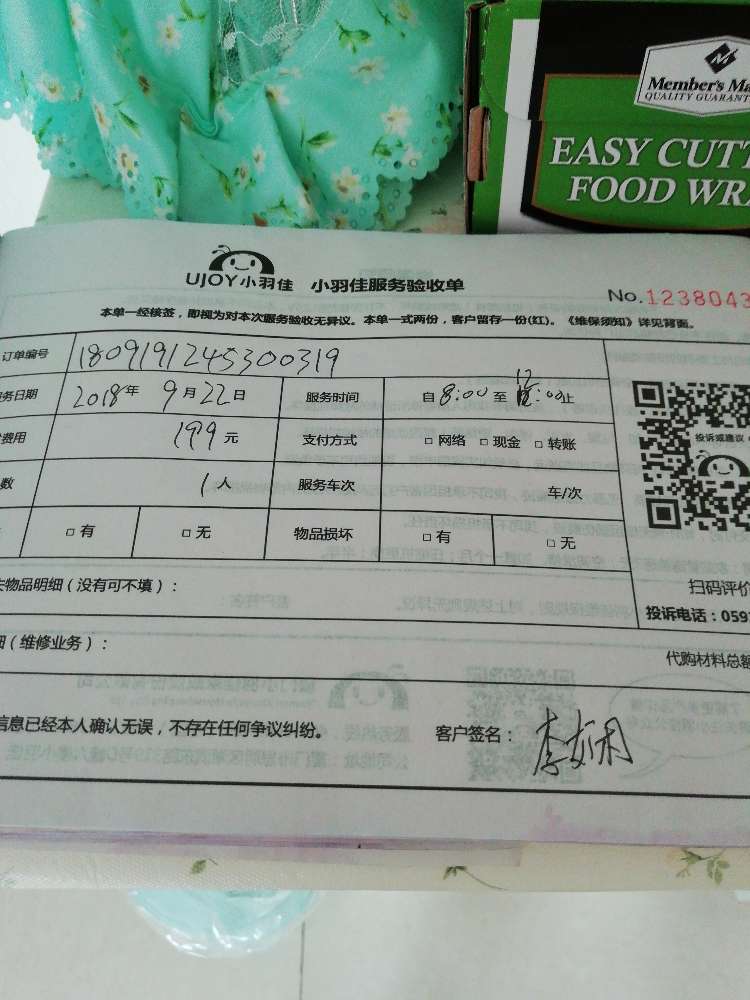 Member's Ma
QUALITY GUARANT
EASY CUTT
FOOD WRA
UJOY小羽佳 小羽佳服务验收单
No.1238043
本单一经核签，即视为对本次服务验收无异议。本单一式两份，客户留存一份(红)。《维保须知》详见背面。
订单编号 1809191245300319
务日期 2018年 9月22日 服务时间 自8:00至12:00止
费用 199元 支付方式 □网络 □现金 □转账
投诉或建议
数 1人 服务车次 车/次
□有 □无 物品损坏 □有 □无
物品明细（没有可不填）：
扫码评价
投诉电话：059
（维修业务）：
代购材料总额
信息已经本人确认无误，不存在任何争议纠纷。 客户签名：